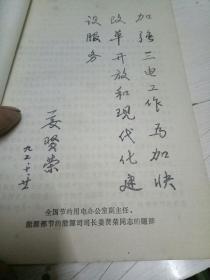 加强三电工作为加快
改革开放和现代化建
设服务
姜贤荣
九二.十.廿
全国节约用电办公室副主任、
能源部节约能源司司长姜贤荣同志的题辞